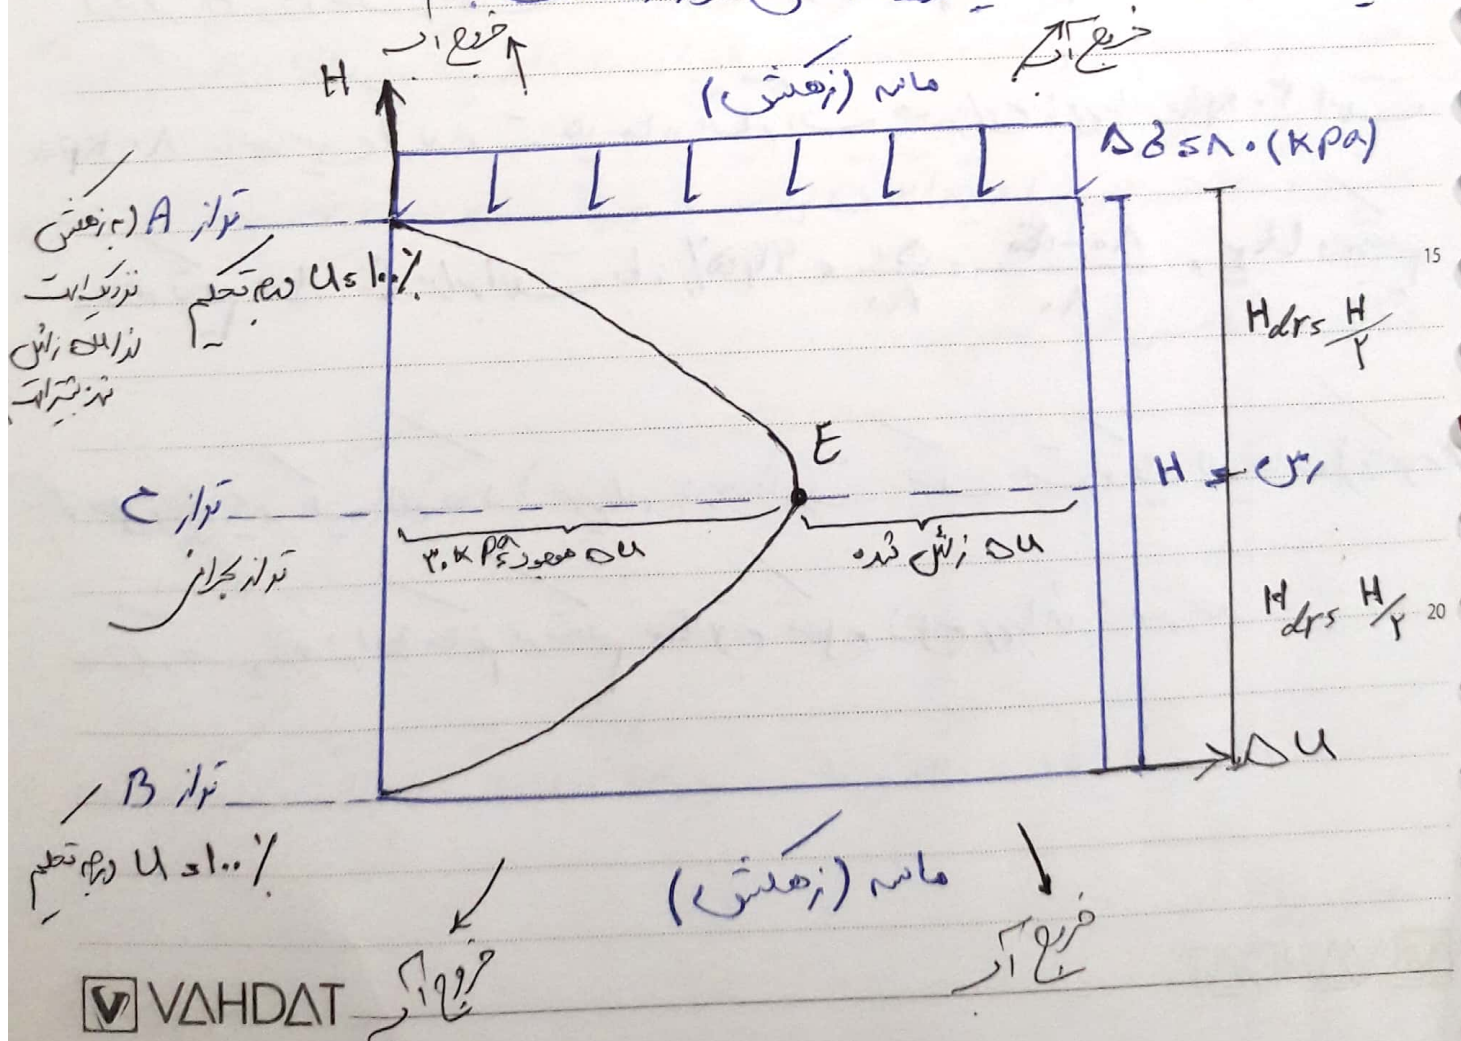 خروج آب
خروج آب
H
ماسه (زهکش)
Δσ = ۸۰ (KPa)
تراز A (به زهکش
نزدیک است
لذا Δu زائل
شده بیشتر است
درجه تحکیم U = ۱۰۰٪
15
Hdr = H/۲
E
H = رس
تراز C
تراز بحرانی
Δu موجود = ۳۰ KPa
Δu زائل شده
Hdr = H/۲
20
Δu
تراز B
درجه تحکیم U = ۱۰۰٪
ماسه (زهکش)
خروج آب
خروج آب
VAHDAT